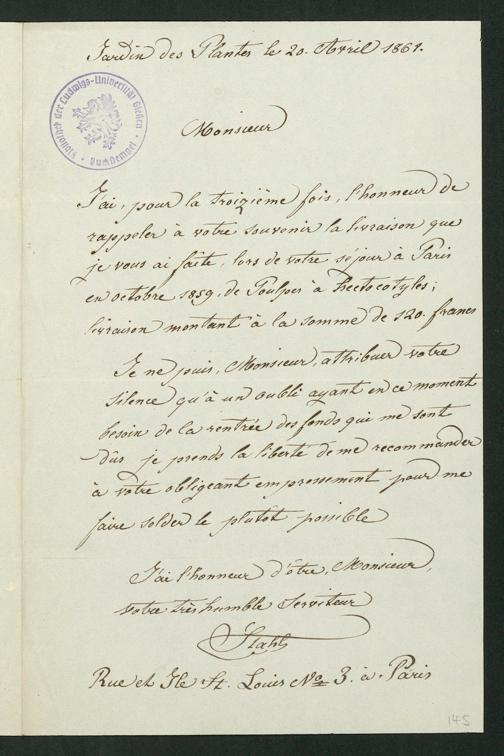 Jardin des Plantes le 20. Avril 1861.
Bibliothek der Ludwigs-Universität Gießen
Buchstempel
Monsieur
J'ai, pour la troizième fois, l'honneur de
rappeler à votre souvenir la livraison que
je vous ai faite, lors de votre séjour à Paris
en octobre 1859, de Poulpes à hectocotyles;
livraison montant à la somme de 120. francs
Je ne puis, Monsieur, attribuer votre
silence qu'à un oubli ayant en ce moment
besoin de la rentrée des fonds qui me sont
dûs je prends la liberté de me recommander
à votre obligeant empressement pour me
faire solder le plutot possible
J'ai l'honneur d'être, Monsieur,
votre très humble Serviteur
Stahl
Rue et Ile St. Louis No 3. à Paris
145